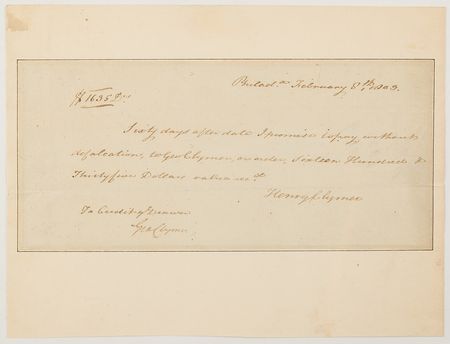 Philada. February 8th 1803.
$ 1635 Drs
Sixty days after date I promise to pay, without
defalcation, to Geo Clymer, or order, Sixteen Hundred &
Thirty five Dollars value recd.
Henry Clymer
To Credit of Drawer
Geo Clymer